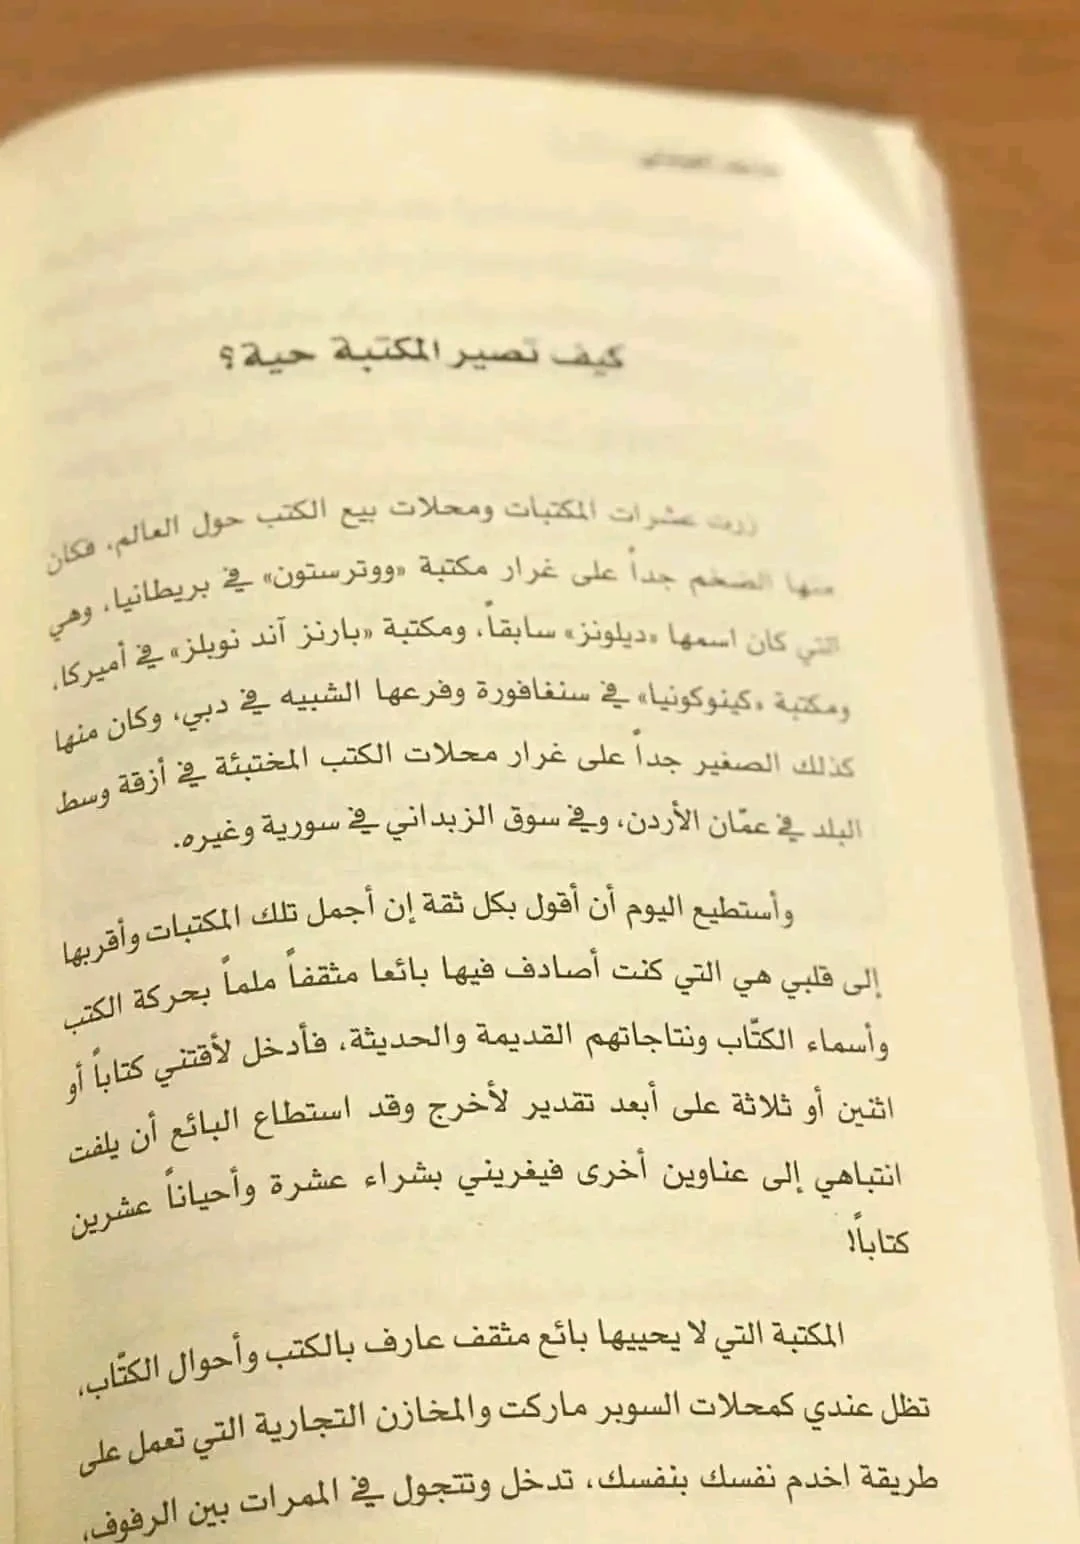 كيف تصير المكتبة حية؟
زرت عشرات المكتبات ومحلات بيع الكتب حول العالم، فكان
منها الضخم جداً على غرار مكتبة «ووترستون» في بريطانيا، وهي
التي كان اسمها «ديلونز» سابقاً، ومكتبة «بارنز آند نوبلز» في أميركا،
ومكتبة «كينوكونيا» في سنغافورة وفرعها الشبيه في دبي، وكان منها
كذلك الصغير جداً على غرار محلات الكتب المختبئة في أزقة وسط
البلد في عمّان الأردن، وفي سوق الزبداني في سورية وغيره.
وأستطيع اليوم أن أقول بكل ثقة إن أجمل تلك المكتبات وأقربها
إلى قلبي هي التي كنت أصادف فيها بائعا مثقفاً ملماً بحركة الكتب
وأسماء الكتّاب ونتاجاتهم القديمة والحديثة، فأدخل لأقتني كتاباً أو
اثنين أو ثلاثة على أبعد تقدير لأخرج وقد استطاع البائع أن يلفت
انتباهي إلى عناوين أخرى فيغريني بشراء عشرة وأحياناً عشرين
كتاباً!
المكتبة التي لا يحييها بائع مثقف عارف بالكتب وأحوال الكتّاب،
تظل عندي كمحلات السوبر ماركت والمخازن التجارية التي تعمل على
طريقة اخدم نفسك بنفسك، تدخل وتتجول في الممرات بين الرفوف،